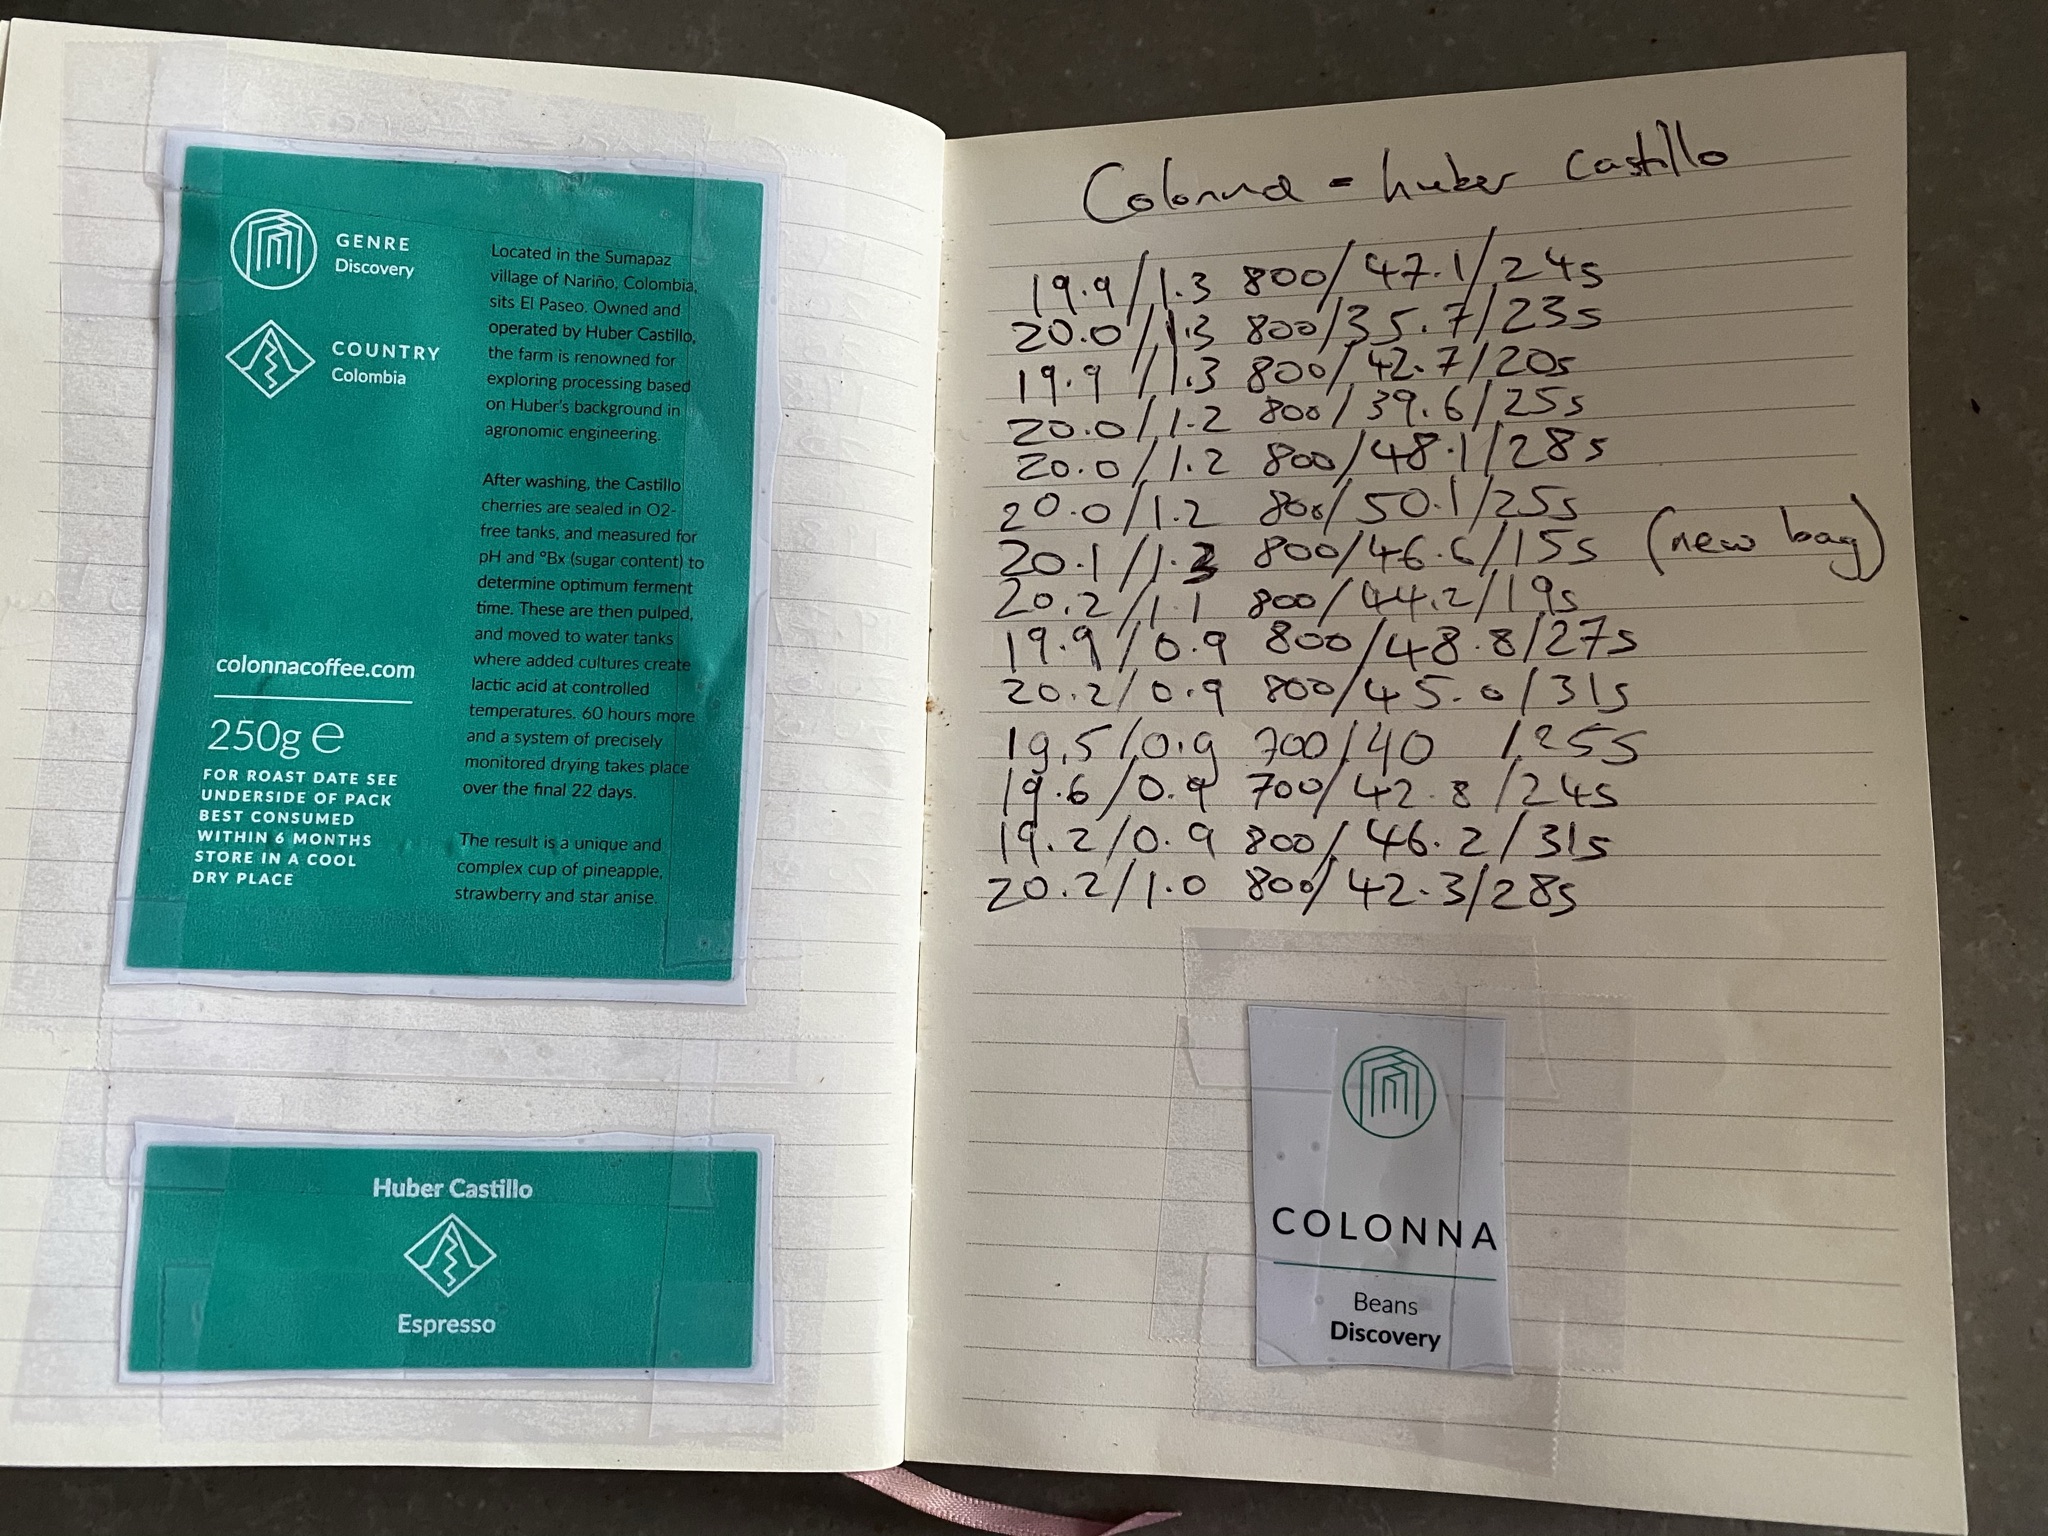 GENRE
Discovery
COUNTRY
Colombia
Located in the Sumapaz
village of Nariño, Colombia,
sits El Paseo. Owned and
operated by Huber Castillo,
the farm is renowned for
exploring processing based
on Huber's background in
agronomic engineering.
After washing, the Castillo
cherries are sealed in O2-
free tanks, and measured for
pH and °Bx (sugar content) to
determine optimum ferment
time. These are then pulped,
and moved to water tanks
where added cultures create
lactic acid at controlled
temperatures. 60 hours more
and a system of precisely
monitored drying takes place
over the final 22 days.
The result is a unique and
complex cup of pineapple,
strawberry and star anise.
colonnacoffee.com
250g e
FOR ROAST DATE SEE
UNDERSIDE OF PACK
BEST CONSUMED
WITHIN 6 MONTHS
STORE IN A COOL
DRY PLACE
Huber Castillo
Espresso
Colonna - huber castillo
19.9/1.3 800/47.1/24s
20.0/1.3 800/35.7/23s
19.9/1.3 800/42.7/20s
20.0/1.2 800/39.6/25s
20.0/1.2 800/48.1/28s
20.0/1.2 800/50.1/25s
20.1/1.3 800/46.6/15s (new bag)
20.2/1.1 800/44.2/19s
19.9/0.9 800/48.8/27s
20.2/0.9 800/45.0/31s
19.5/0.9 700/40 /25s
19.6/0.9 700/42.8/24s
19.2/0.9 800/46.2/31s
20.2/1.0 800/42.3/28s
COLONNA
Beans
Discovery